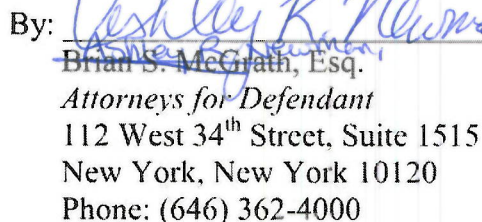 By: Ashley R. Newman
Ashley R. Newman,
Brian S. McGrath, Esq.
Attorneys for Defendant
112 West 34th Street, Suite 1515
New York, New York 10120
Phone: (646) 362-4000